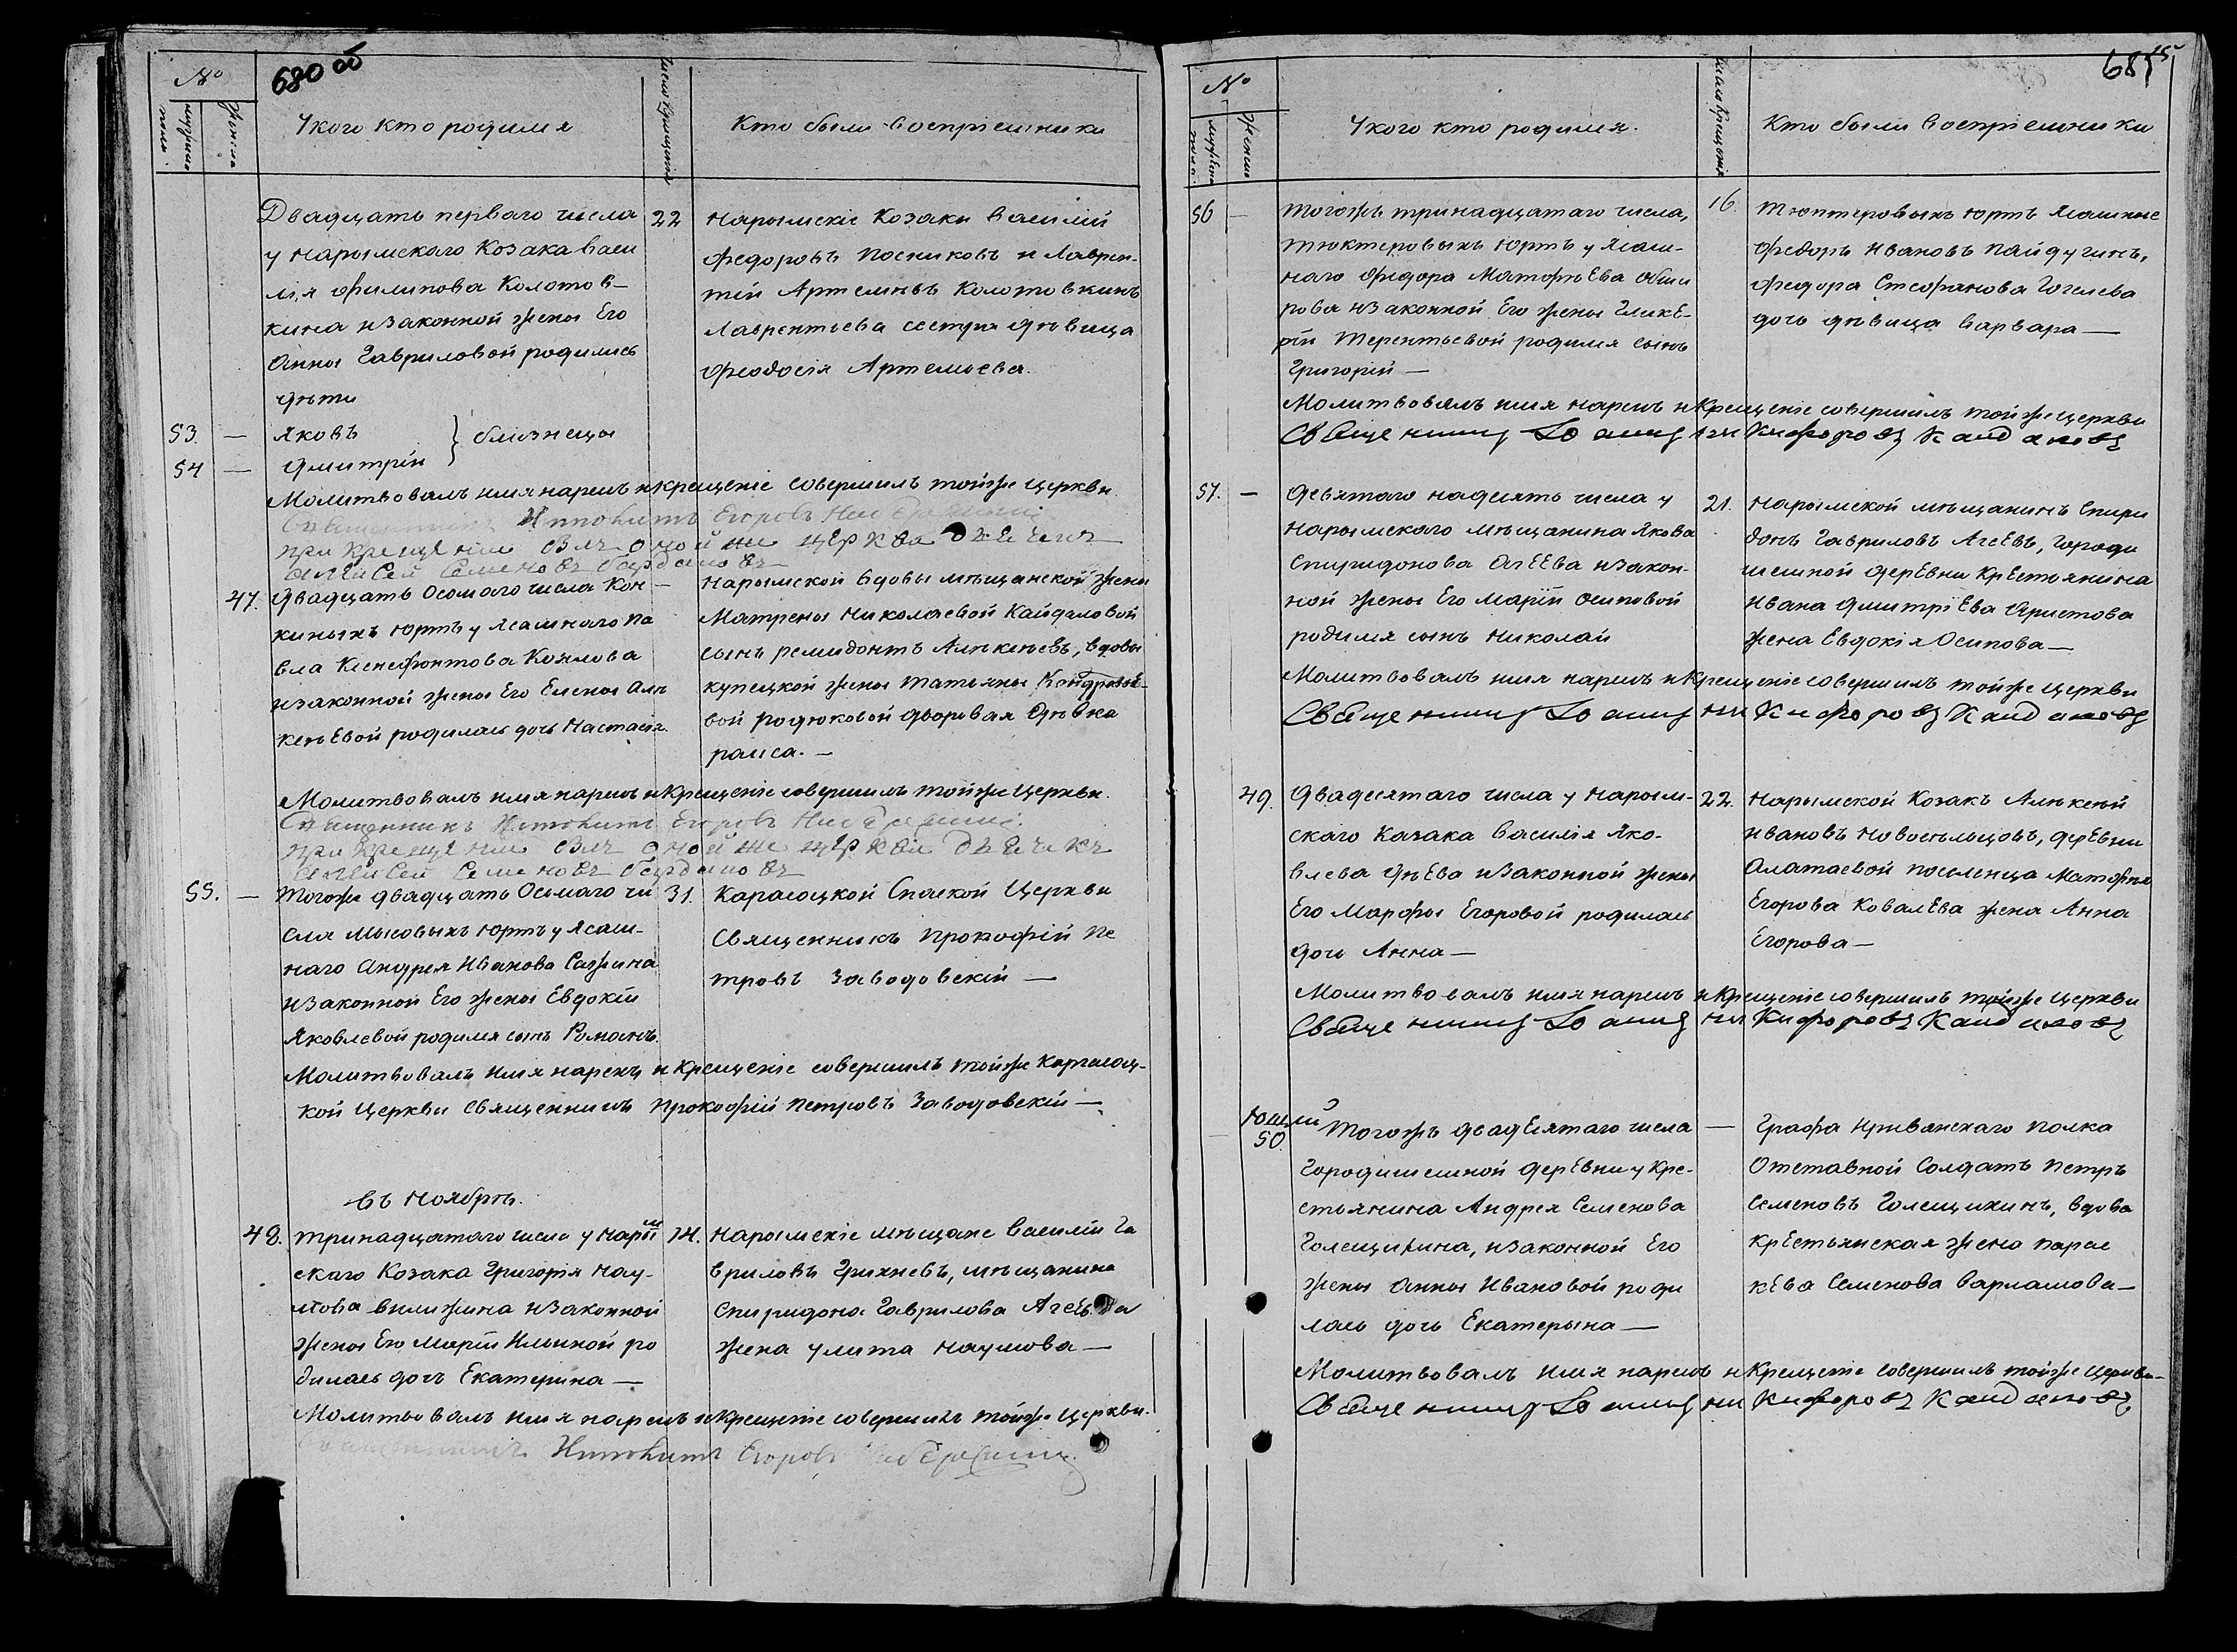 №
680 об
мужеска пола
женска
Укого кто родился
число крещенія
Кто были воспріемники
Двадцать перваго числа
у Нарымскаго Козака Васи
лія Филипова Колотов-
кина изаконной жены Его
Анны Гавриловой родились
дѣти
53. — Яковъ
} близнецы
54 — Дмитрій
22
Нарымскіе Козаки Василій
Федоровъ Посниковъ и Лаврен-
тій Артемьевъ Колотовкинъ
Лаврентьева сестра дѣвица
Феодосія Артемьева.
Молитвовалъ имя нарекъ и крещеніе совершилъ тойже церкви
Священникъ Инокентъ Егоровъ
при крещеніи былъ оной же церкви дьячекъ
Алексей Семеновъ
47. Двадцать Осьмаго числа Кон-
киныхъ юртъ у Ясашнаго Па
вла Ксенофонтова Козлова
изаконной жены Его Елены Але
кеѣвой родилась дочь Настасія.
—
Нарымской вдовы мѣщанской жены
Матрены Николаевой Кайдаловой
сынъ Алекѣевъ, вдовы
купецкой жены Татьяны
вой Родюковой дворовая дѣвка
раиса. —
Молитвовалъ имя нарекъ и Крещеніе совершилъ тойже Церкви.
Священникъ Инокентъ Егоровъ
при крещеніи былъ оной же церкви дьячекъ
Алексей Семеновъ
55. — Тогоже двадцать Осьмаго чи
сла Мысовыхъ юртъ у Ясаш-
наго Андрея Иванова Сажина
изаконной Его жены Евдокіи
Яковлевой родился сынъ Романъ.
31.
Карасоцкой Спаской Церкви
Священникъ Прокофій Пе
тровъ Заводовскій —
Молитвовалъ имя нарекъ и крещеніе совершилъ тойже Каргасоц-
кой Церкви Священникъ Прокофій Петровъ Заводовскій —
въ Ноябрѣ.
48. Тринадцатаго числа у Нарым
скаго Козака Григорія Нау-
мова Вилижина изаконной
жены Его Маріи Ильиной ро
дилась дочь Екатерина —
14.
Нарымскіе мѣщане Василій Га
вриловъ Грихневъ, мѣщанина
Спиридона Гаврилова Агеѣва
жена Улита Наумова —
Молитвовалъ имя нарекъ и крещеніе совершилъ тойже Церкви.
Священникъ Инокентъ Егоровъ
№
мужеска пола
женска
Укого кто родился.
число Крещенія
Кто были воспріемники
56 — Тогожъ тринадцатаго числа,
Тюктеровыхъ юртъ у Ясаш-
наго Федора Матфѣева
рова изаконной Его жены Глике-
ріи Терентьевой родился сынъ
Григорій —
16.
Тюктеровыхъ юртъ Ясашные
Федоръ Ивановъ Пайдугинъ,
Федора Стефанова Гогелева
дочь дѣвица Варвара —
Молитвовалъ имя нарекъ и Крещеніе совершилъ тойже церкви
Священникъ Іоаннъ Никифоровъ Кайдаловъ
57. — Девятаго надесять числа у
Нарымскаго мѣщанина Якова
Спиридонова Агеева изакон-
ной жены Его Маріи Осиповой
родился сынъ Николай
21.
Нарымской мѣщанинъ Спири
донъ Гавриловъ Агеевъ, Городи
щешной деревни Крестьянина
Ивана Дмитріева Аристова
жена Евдокія Осипова —
Молитвовалъ имя нарекъ и Крещеніе совершилъ тойже церкви
Священникъ Іоаннъ Никифоровъ Кайдаловъ
49. Двадесятаго числа у Нарым-
скаго Казака Василія Яко-
влева Дѣева изаконной жены
Его Марфы Егоровой родилась
дочь Анна —
22.
Нарымской Козакъ Алекѣй
Ивановъ Новосельцовъ, деревни
Алатаевой поселенца Матфѣя
Егорова Ковалева жена Анна
Егорова —
Молитвовалъ имя нарекъ и Крещеніе совершилъ тойже церкви
Священникъ Іоаннъ Никифоровъ Кайдаловъ
50. Тогожъ двадесятаго числа
Городищешной деревни у Кре-
стьянина Андрея Семенова
Голещихина, изаконной Его
жены Анны Ивановой роди
лась дочь Екатерына —
—
Графа Ириванскаго полка
Отставной Солдатъ Петръ
Семеновъ Голещихинъ, вдова
крестьянская жена Парас
кева Семенова Варламова —
Молитвовалъ имя нарекъ и Крещеніе совершилъ тойже Церкви —
Священникъ Іоаннъ Никифоровъ Кайдаловъ